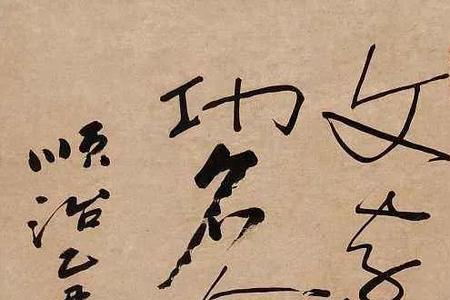 文章
功名
順治乙